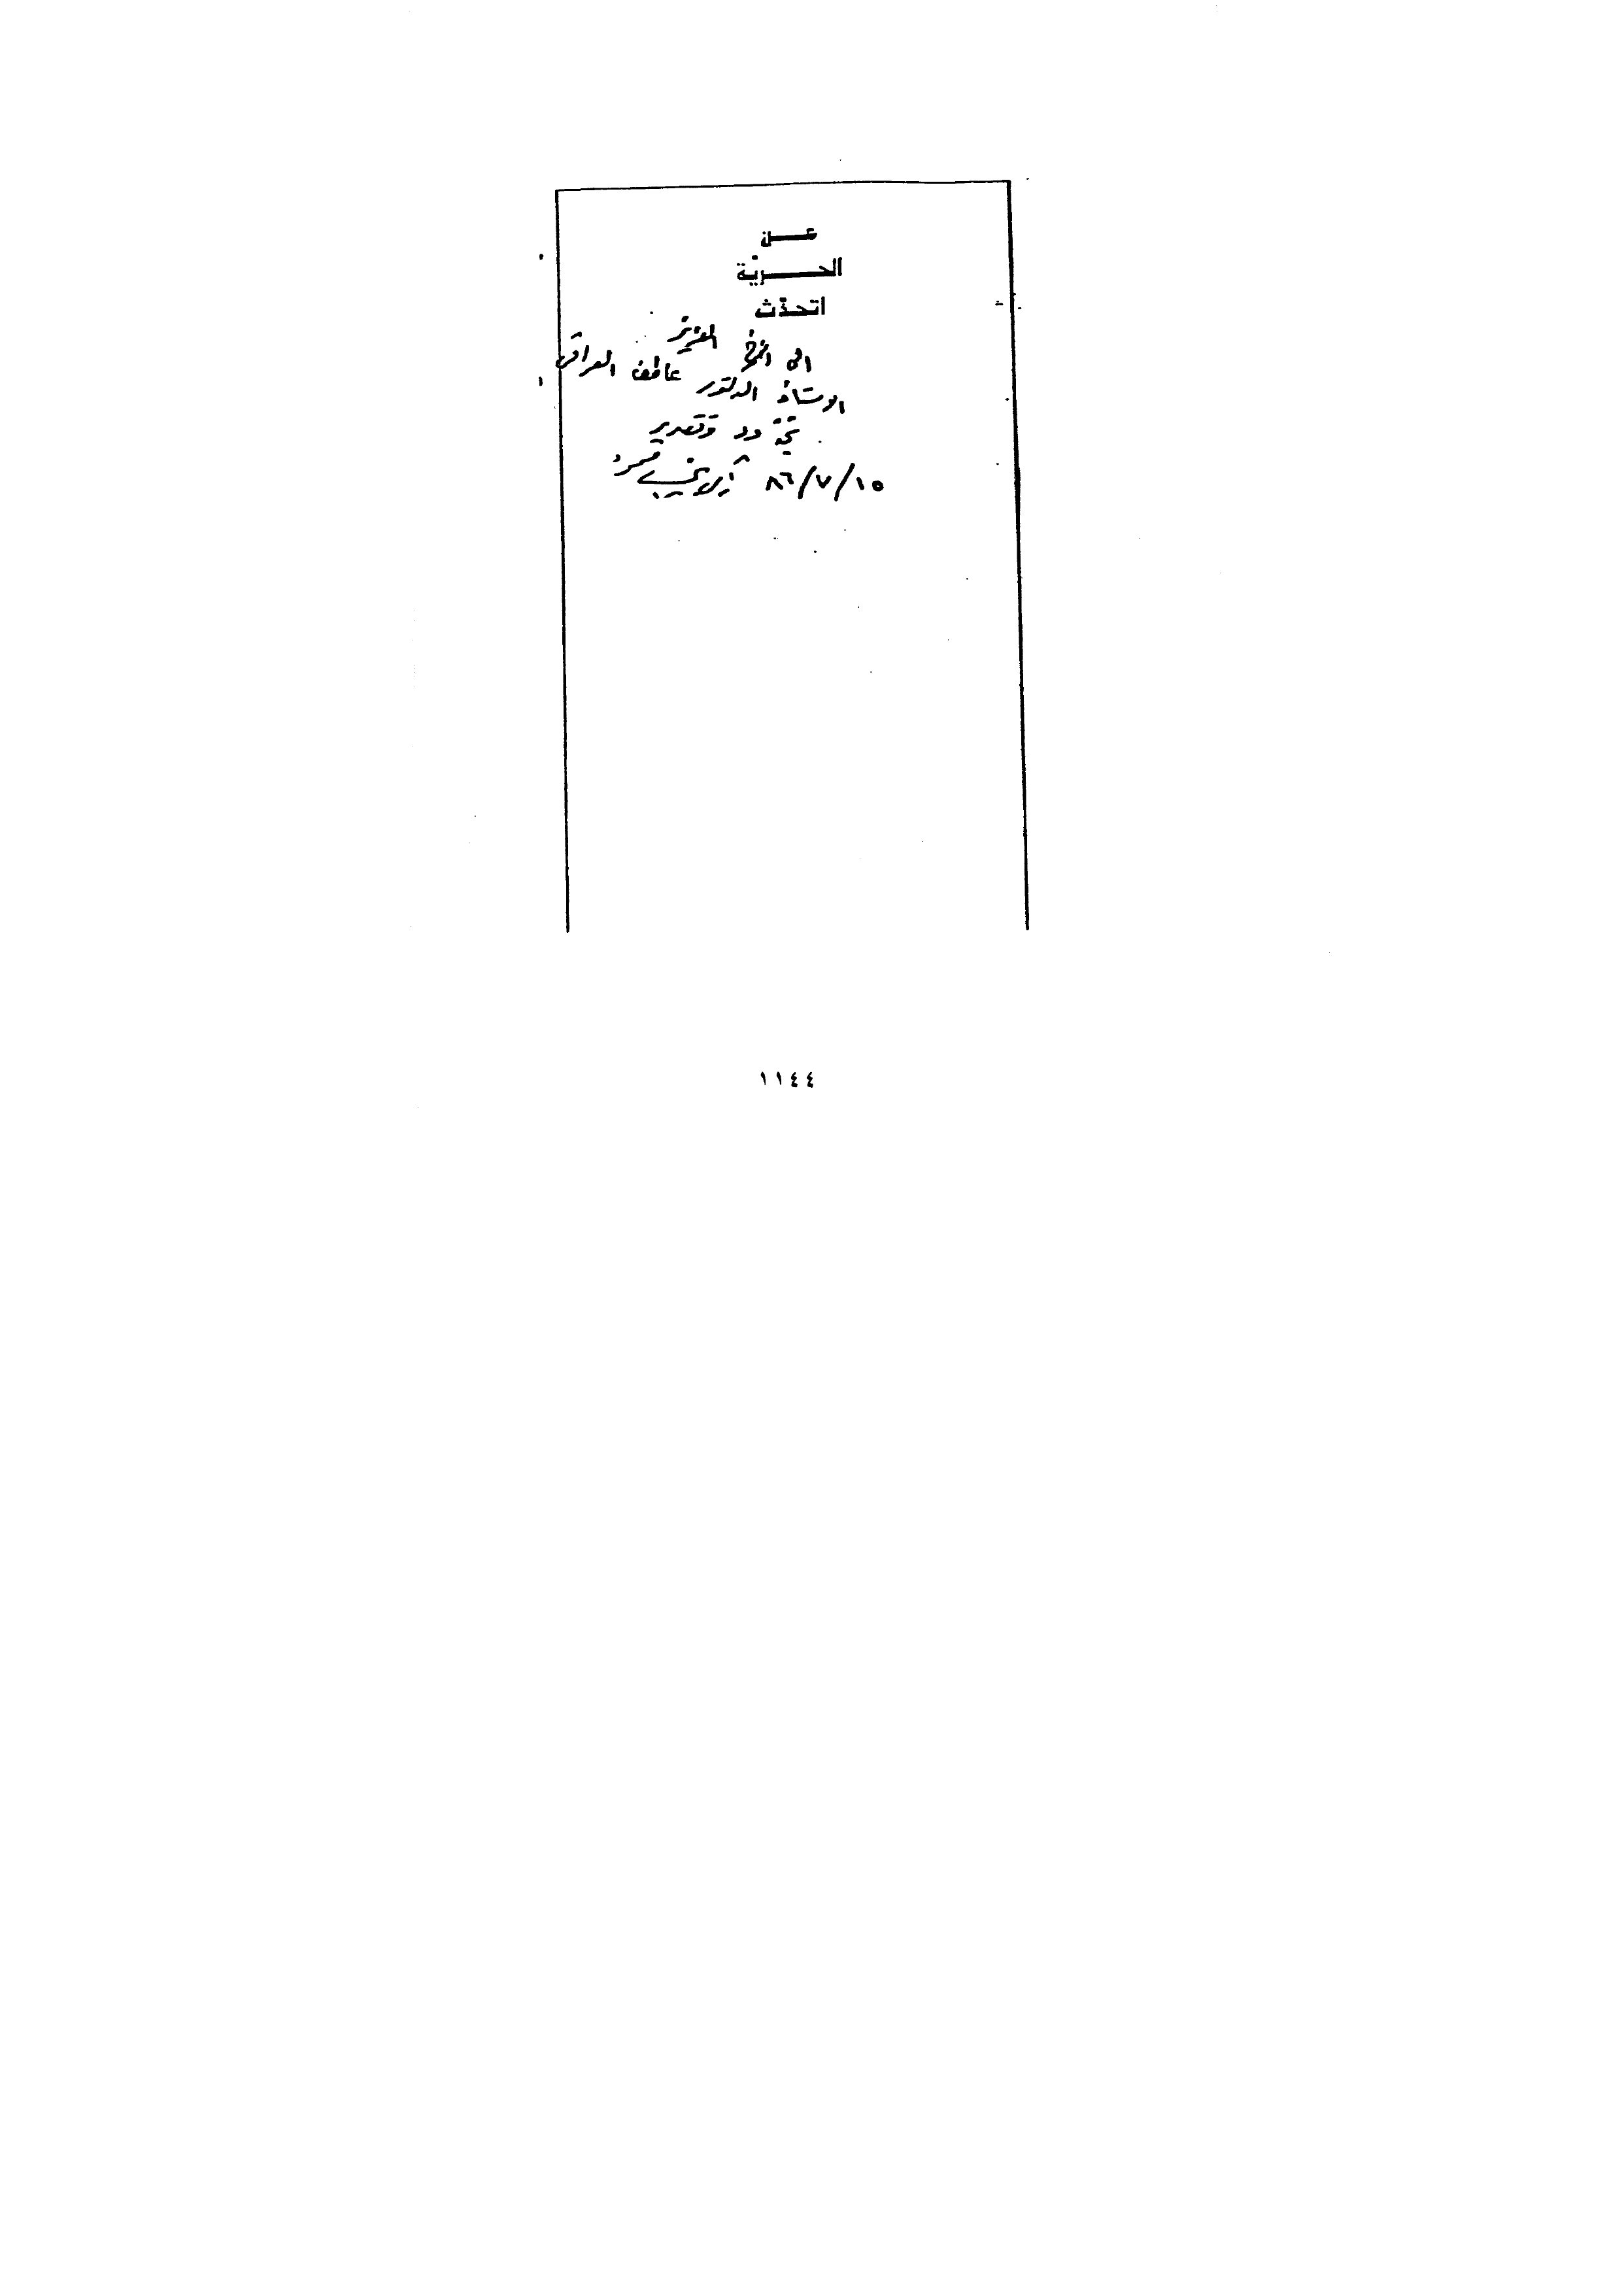 عن
الحرية
اتحدّث
الى الأخ العزيز
الاستاذ الدكتور عاطف العراقى
تحية ود وتقدير
زكي نجيب محمود ٨٦/٧/١٥
١١٤٤